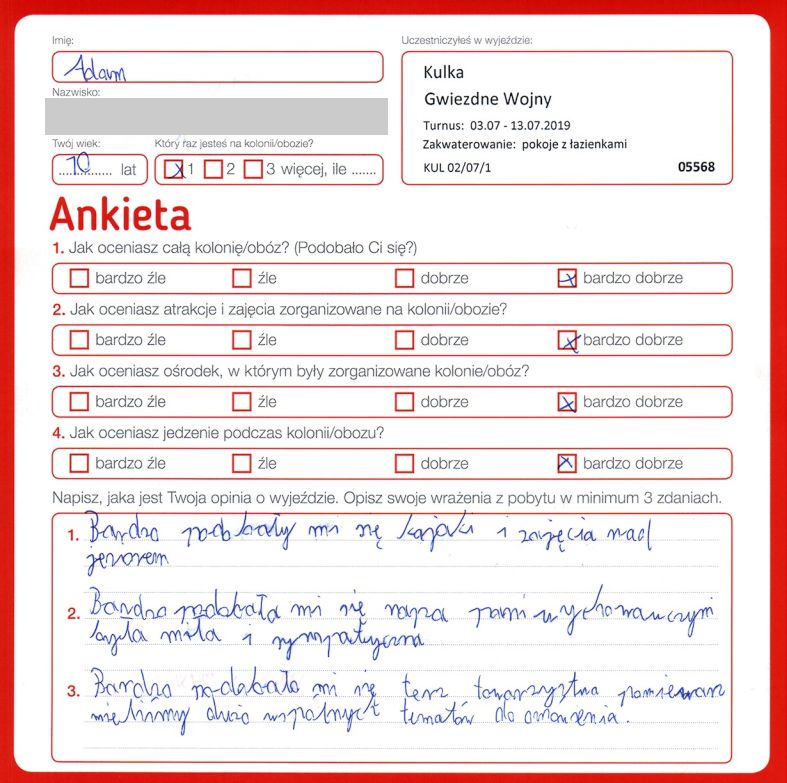 Imię:
Adam
Nazwisko:
Twój wiek:
10 lat
Który raz jesteś na kolonii/obozie?
1 2 3 więcej, ile .......
Uczestniczyłeś w wyjeździe:
Kulka
Gwiezdne Wojny
Turnus: 03.07 - 13.07.2019
Zakwaterowanie: pokoje z łazienkami
KUL 02/07/1 05568
Ankieta
1. Jak oceniasz całą kolonię/obóz? (Podobało Ci się?)
bardzo źle źle dobrze bardzo dobrze
2. Jak oceniasz atrakcje i zajęcia zorganizowane na kolonii/obozie?
bardzo źle źle dobrze bardzo dobrze
3. Jak oceniasz ośrodek, w którym były zorganizowane kolonie/obóz?
bardzo źle źle dobrze bardzo dobrze
4. Jak oceniasz jedzenie podczas kolonii/obozu?
bardzo źle źle dobrze bardzo dobrze
Napisz, jaka jest Twoja opinia o wyjeździe. Opisz swoje wrażenia z pobytu w minimum 3 zdaniach.
1. Bardzo podobały mi się kajaki i zajęcia nad
jeziorem
2. Bardzo podobała mi się nasza pani wychowawczyni
była miła i sympatyczna
3. Bardzo podobało mi się tesz towarzystwo
mieliśmy dużo wspólnych tematów do omówienia.